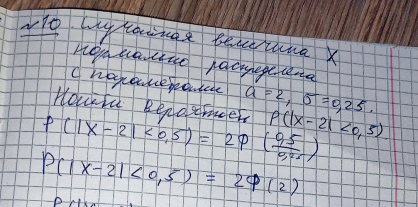 №10 Случайная величина X
нормально распределена
с параметрами a=2, б=0,25.
Найти вероятность P(|X-2|<0,5)
P(|X-2|<0,5) = 2Ф (0,5/0,25)
P(|X-2|<0,5) = 2Ф(2)